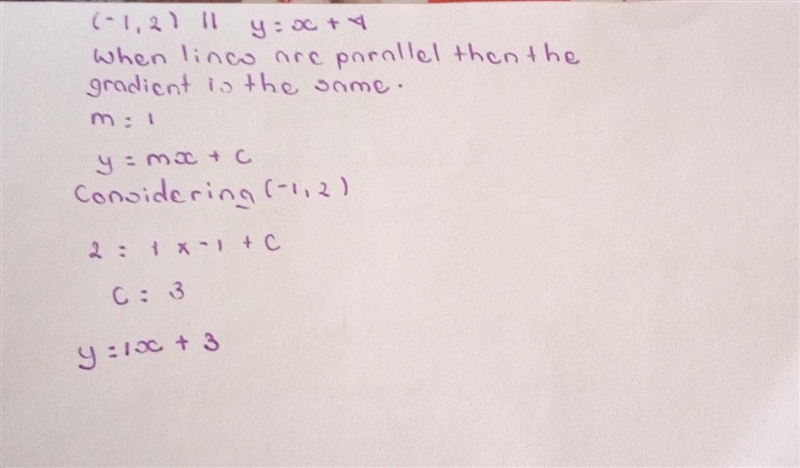 (-1,2) || y = x + 4
When lines are parallel then the
gradient is the same.
m = 1
y = mx + c
Considering (-1,2)
2 = 1 x -1 + c
c = 3
y = 1x + 3